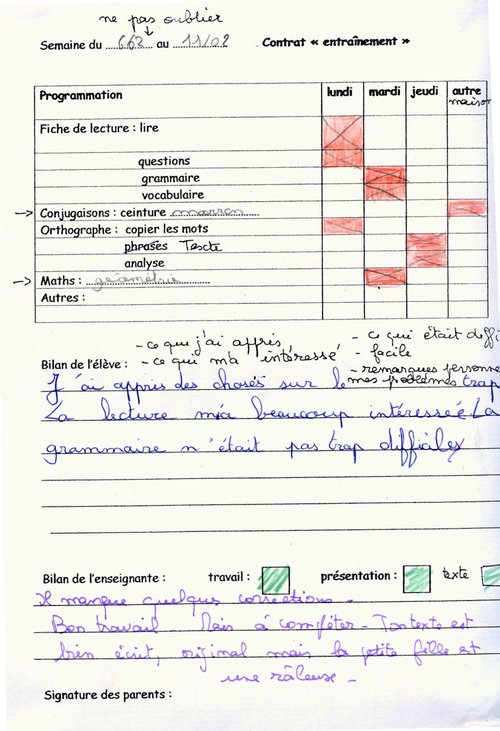 ne pas oublier
Semaine du 6/02 au 11/02 Contrat « entraînement »
Programmation lundi mardi jeudi autre maison
Fiche de lecture : lire
questions
grammaire
vocabulaire
Conjugaisons : ceinture marron
Orthographe : copier les mots
phrases Texte
analyse
Maths : géométrie
Autres :
- ce qui j'ai appris - ce qui était diffi
Bilan de l'élève : - ce qui m'a intéressé - facile
- remarques personne
mes problèmes
J'ai appris des choses sur le trap
La lecture m'a beaucoup intéressée La
grammaire n'était pas trop difficile
Bilan de l'enseignante : travail : présentation : texte
Il manque quelques corrections -
Bon travail Mais à compléter - Ton texte est
bien écrit, original mais la petite fille est
une râleuse -
Signature des parents :